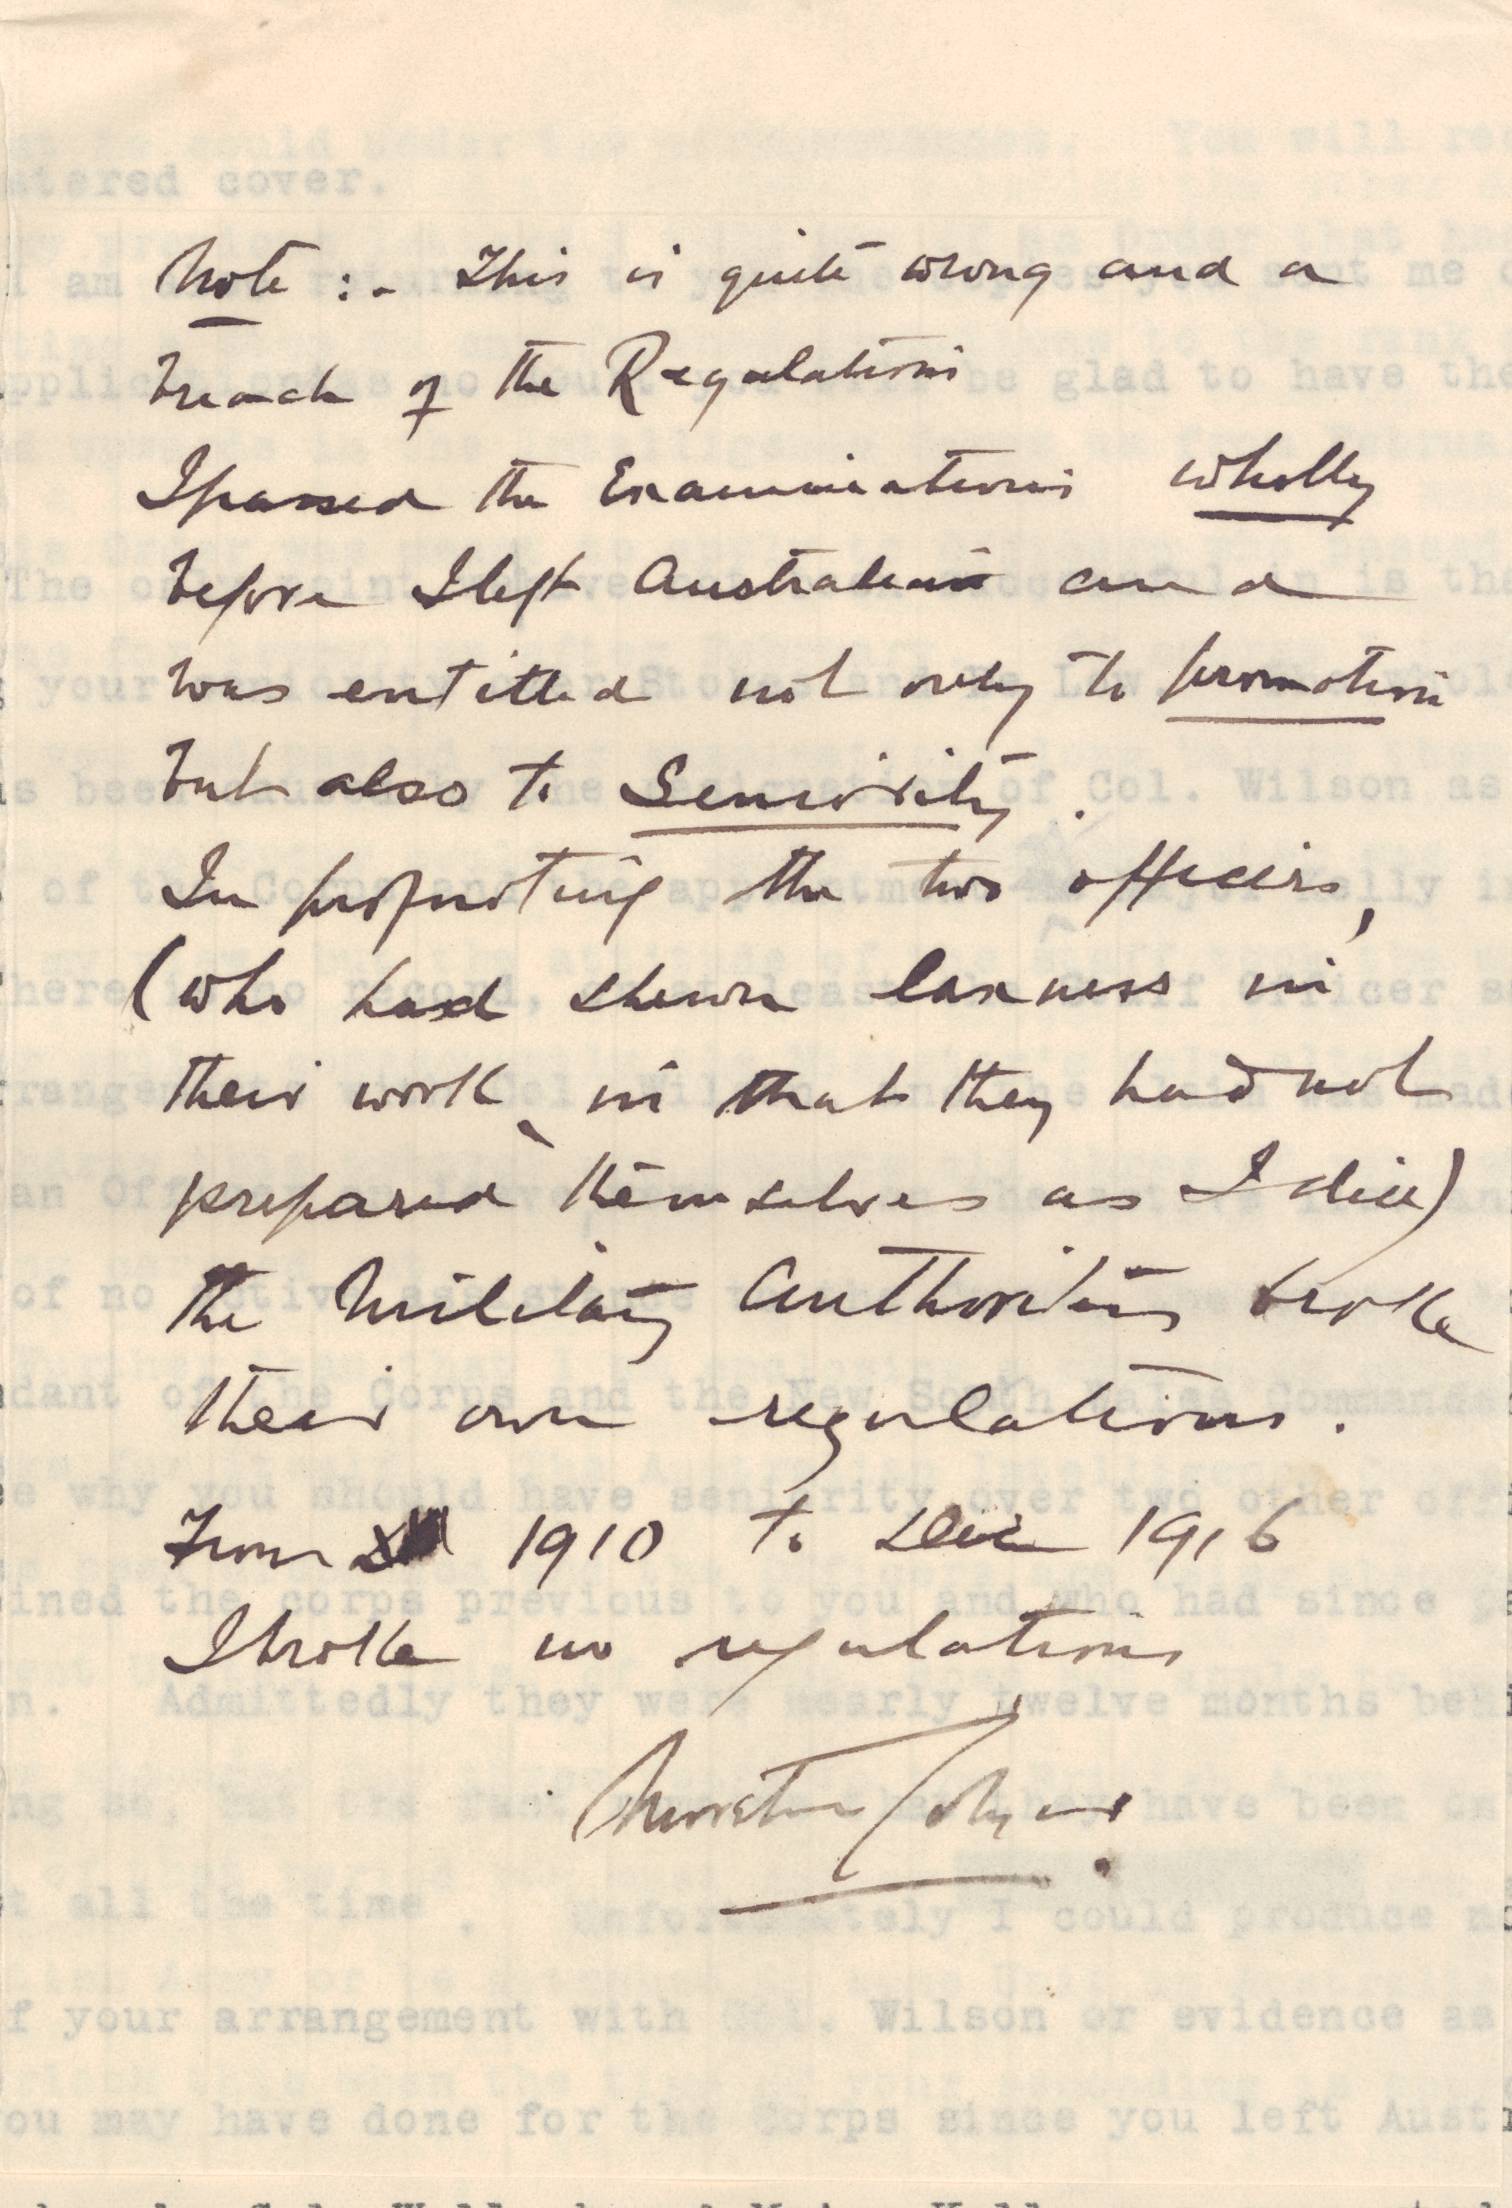 Note :- This is quite wrong and a
breach of the Regulations
I passed the Examinations wholly
before I left Australia and
was entitled not only to promotion
but also to Seniority.
In promoting the two officers,
(who had shewn laxness in
their work, in that they had not
prepared themselves as I did)
the Military Authorities broke
their own regulations.
From 1910 to Dec 1916
I broke no regulations